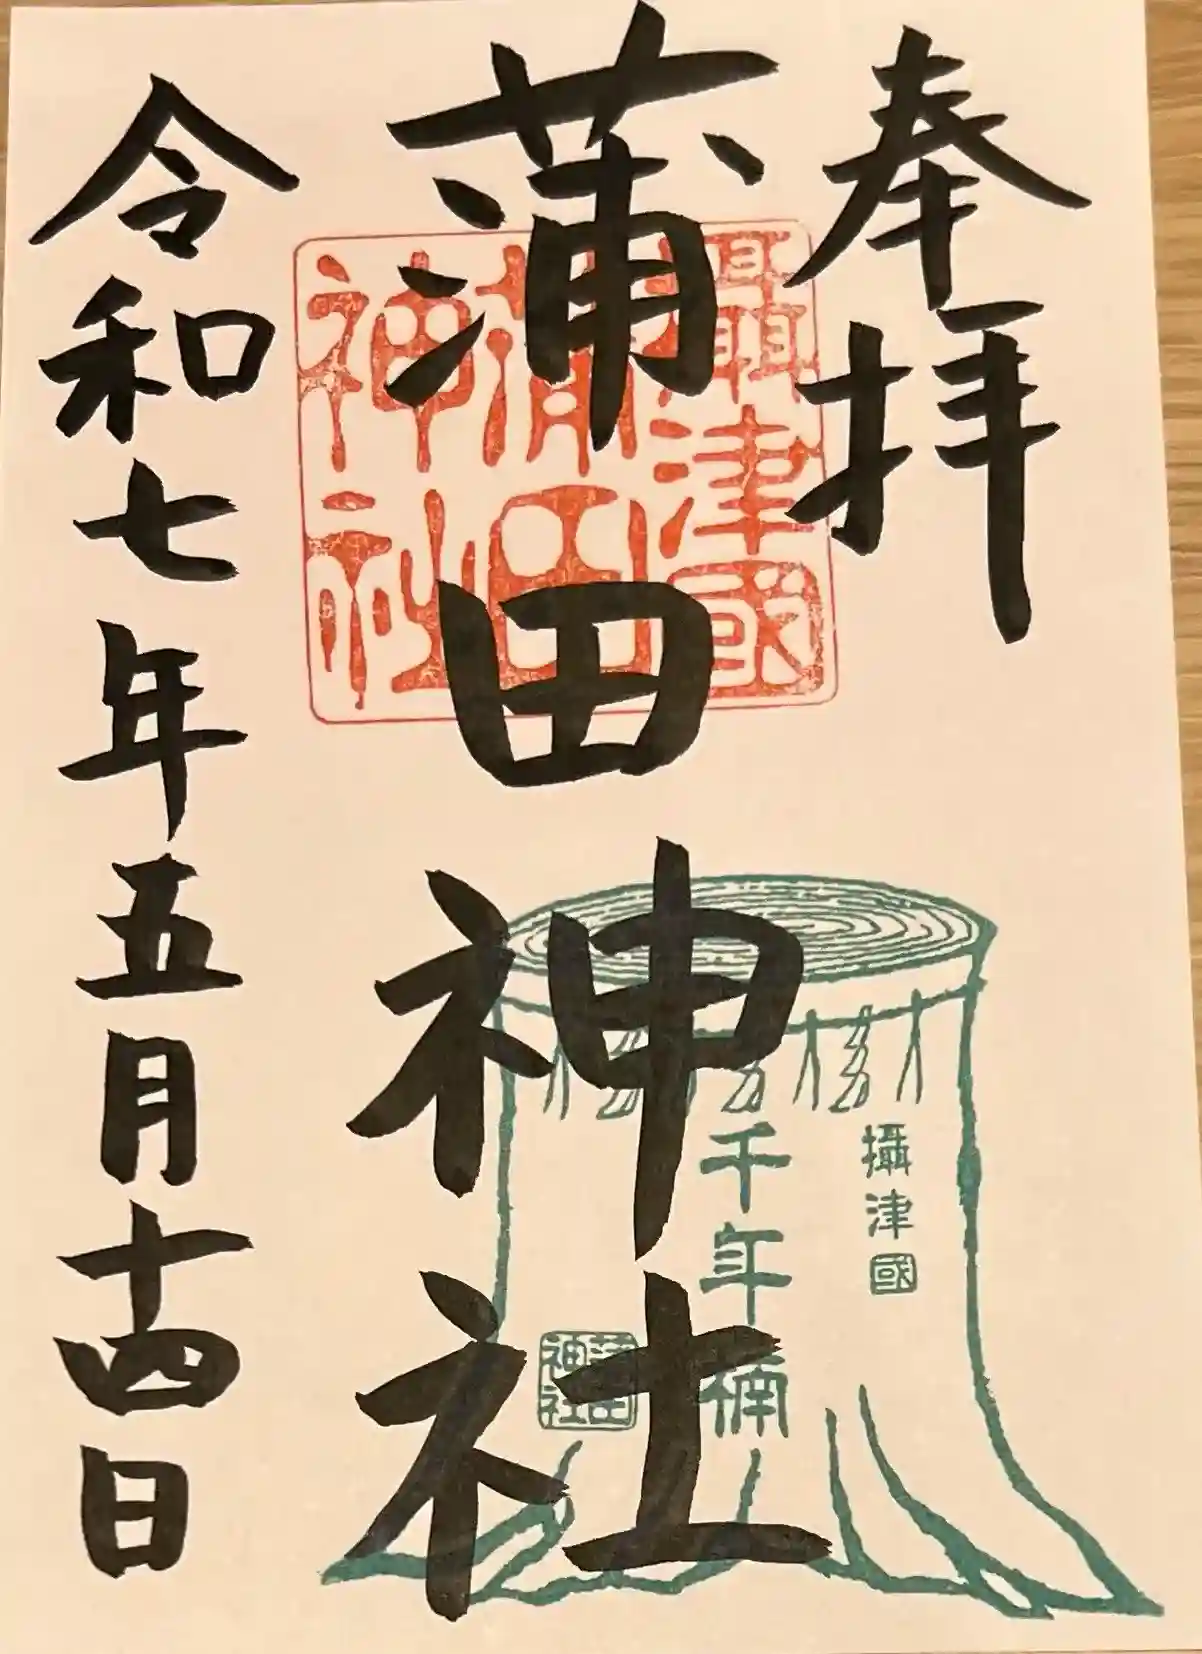 奉拝
蒲田神社
令和七年五月十四日
攝津國
蒲田
神社
攝津國
千年楠
蒲田
神社